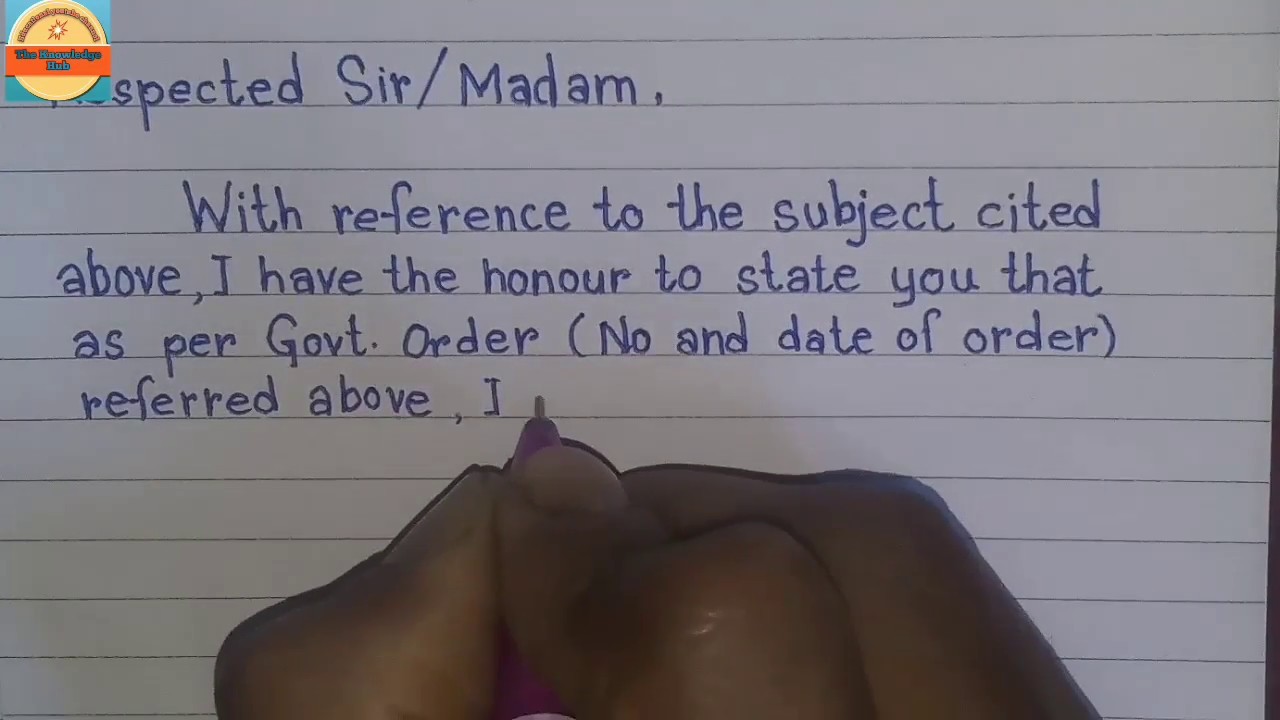 The Knowledge
Hub
spected Sir/Madam,
With reference to the subject cited
above, I have the honour to state you that
as per Govt. Order (No and date of order)
referred above, I